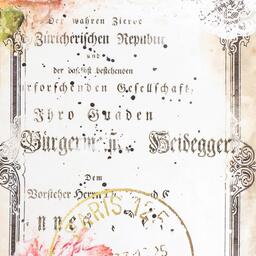 Der wahren Zierde
Züricherischen Republic
und
der daselbst bestehenden
urforschenden Gesellschaft,
Ihro Gnaden
Bürgerme Heidegger,
Dem
Vorsteher Herrn
PARIS 125
25